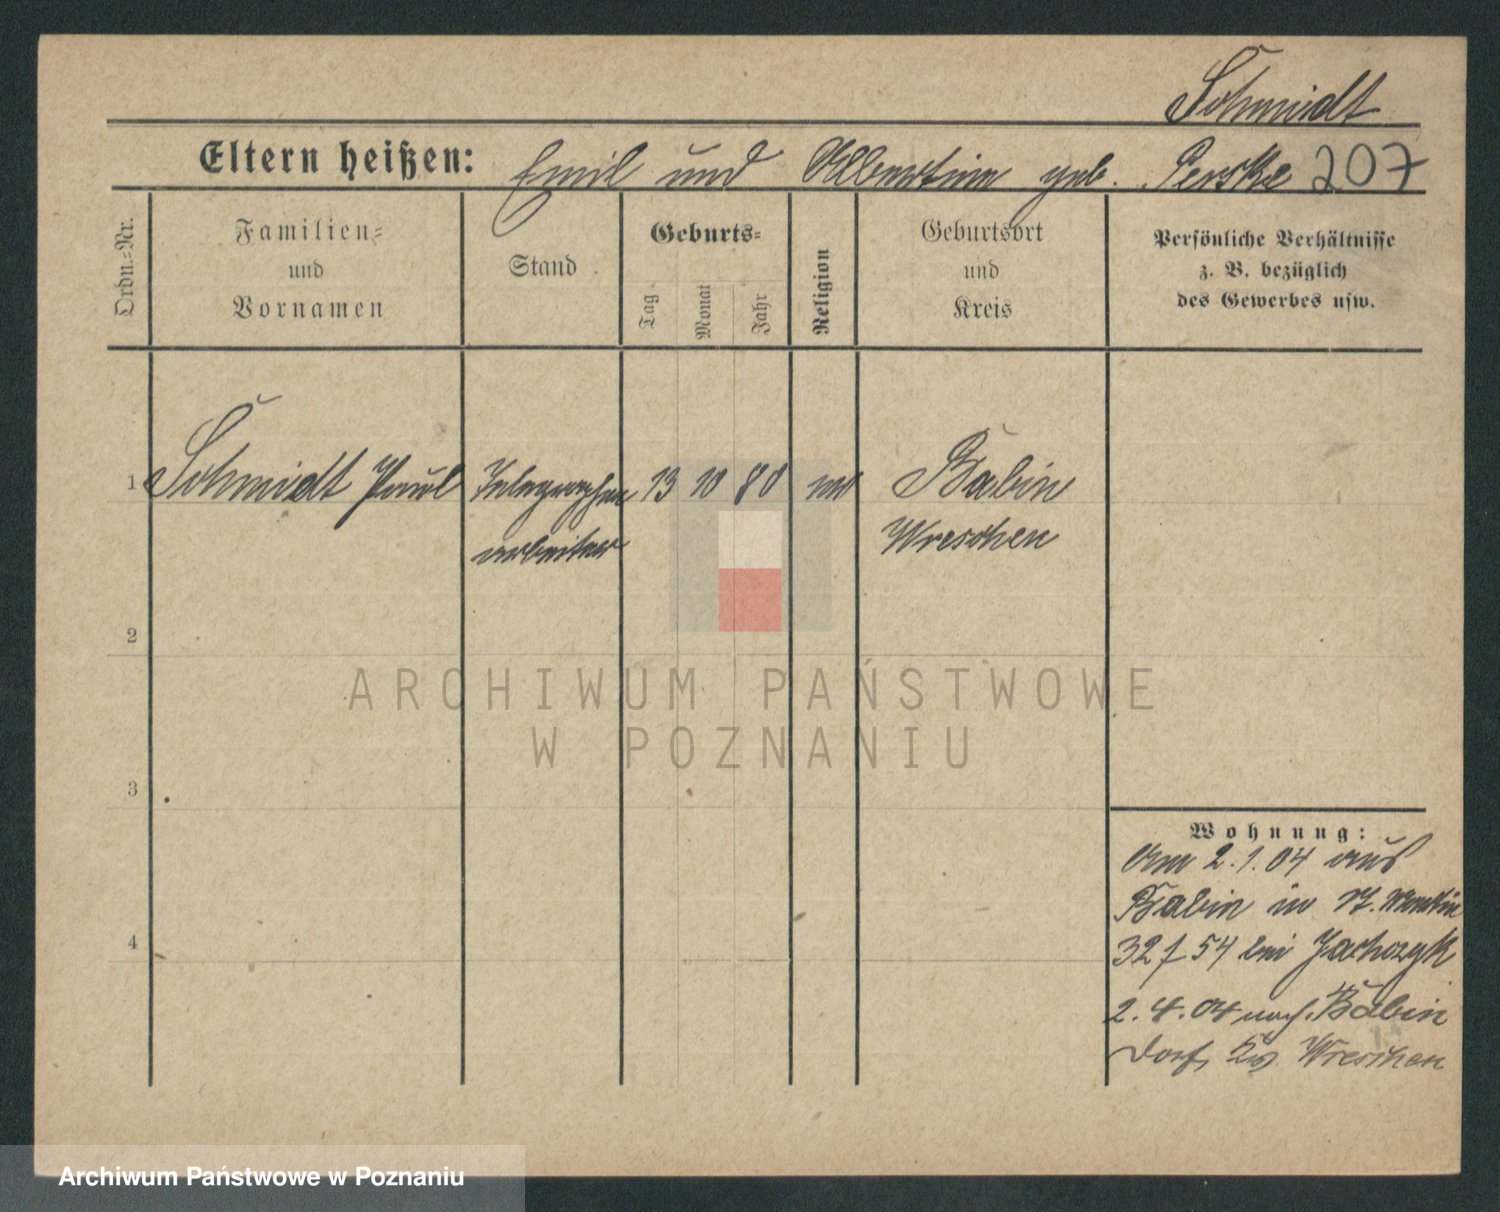 Schmidt
Eltern heißen: Emil und Albertine geb. Perske 207
Ordn.-Nr.
Familien-
und
Vornamen
Stand
Geburts-
Tag
Monat
Jahr
Religion
Geburtsort
und
Kreis
Persönliche Verhältnisse
z. B. bezüglich
des Gewerbes usw.
1 Schmidt Paul Telegraphen 13 10 80 Babin
arbeiter Wreschen
2
ARCHIWUM PAŃSTWOWE
W POZNANIU
3
Wohnung:
Am 2.1.04 aus
Babin in
4
32 f 54 bei
2.4.04 nach Babin
Dorf, Kr. Wreschen
Archiwum Państwowe w Poznaniu